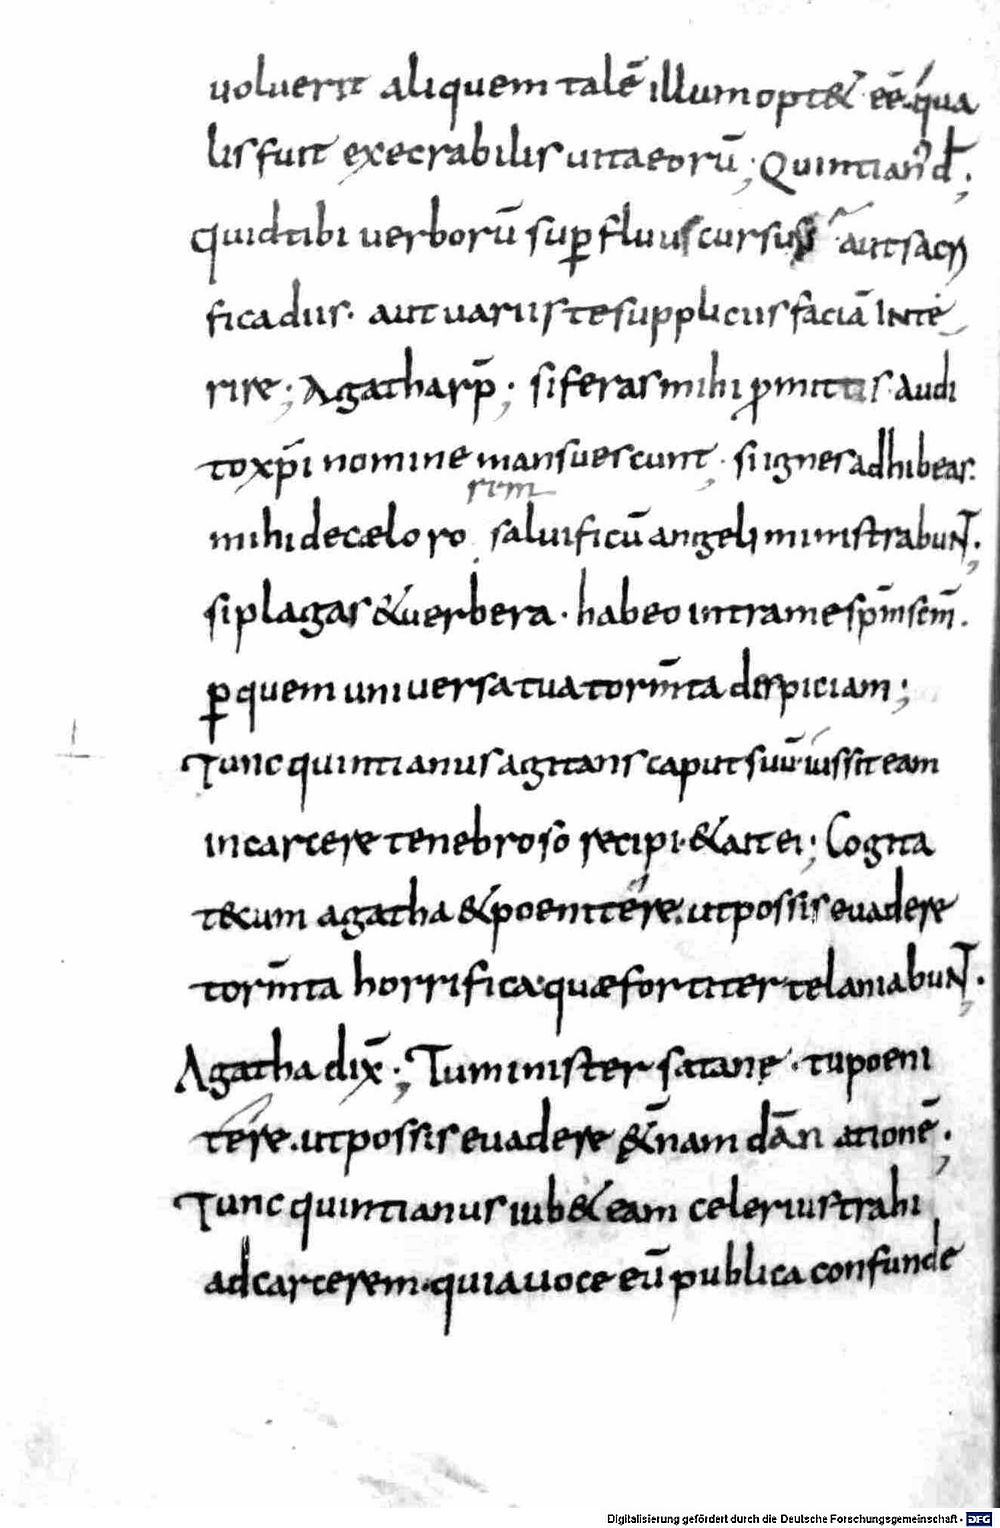 voluerit aliquem talē illum opt& eē. qua
lis fuit execrabilis uita eorū; Quintian' d̄;
quid tibi uerborū sup̱fluus cursus aut sacri
fica diis. aut uariis te suppliciis faciā inte
rire; Agatha rp̄; si feras mihi promittis. audi
to xp̄i nomine mansuescunt; si ignes adhibeas.
rem
mihi de cælo ro salvificū angeli ministrabunt;
si plagas & uerbera. habeo intra me sp̄m sc̄m.
p̱ quem uniuersa tua torm̄ta despiciam;
Tunc quintianus agitans caput suū iussit eam
in carcere tenebroso recipi. & ait ei; Cogita
tecum agatha & poenitere. ut possis euadere
torm̄ta horrifica. quæ fortiter te laniabunt;
Agatha dix̄; Tu minister satanę. tu poeni
tere. ut possis euadere &̄nam dānationē;
Tunc quintianus iub& eam celerius trahi
ad carcerem. quia uoce eū publica confunde